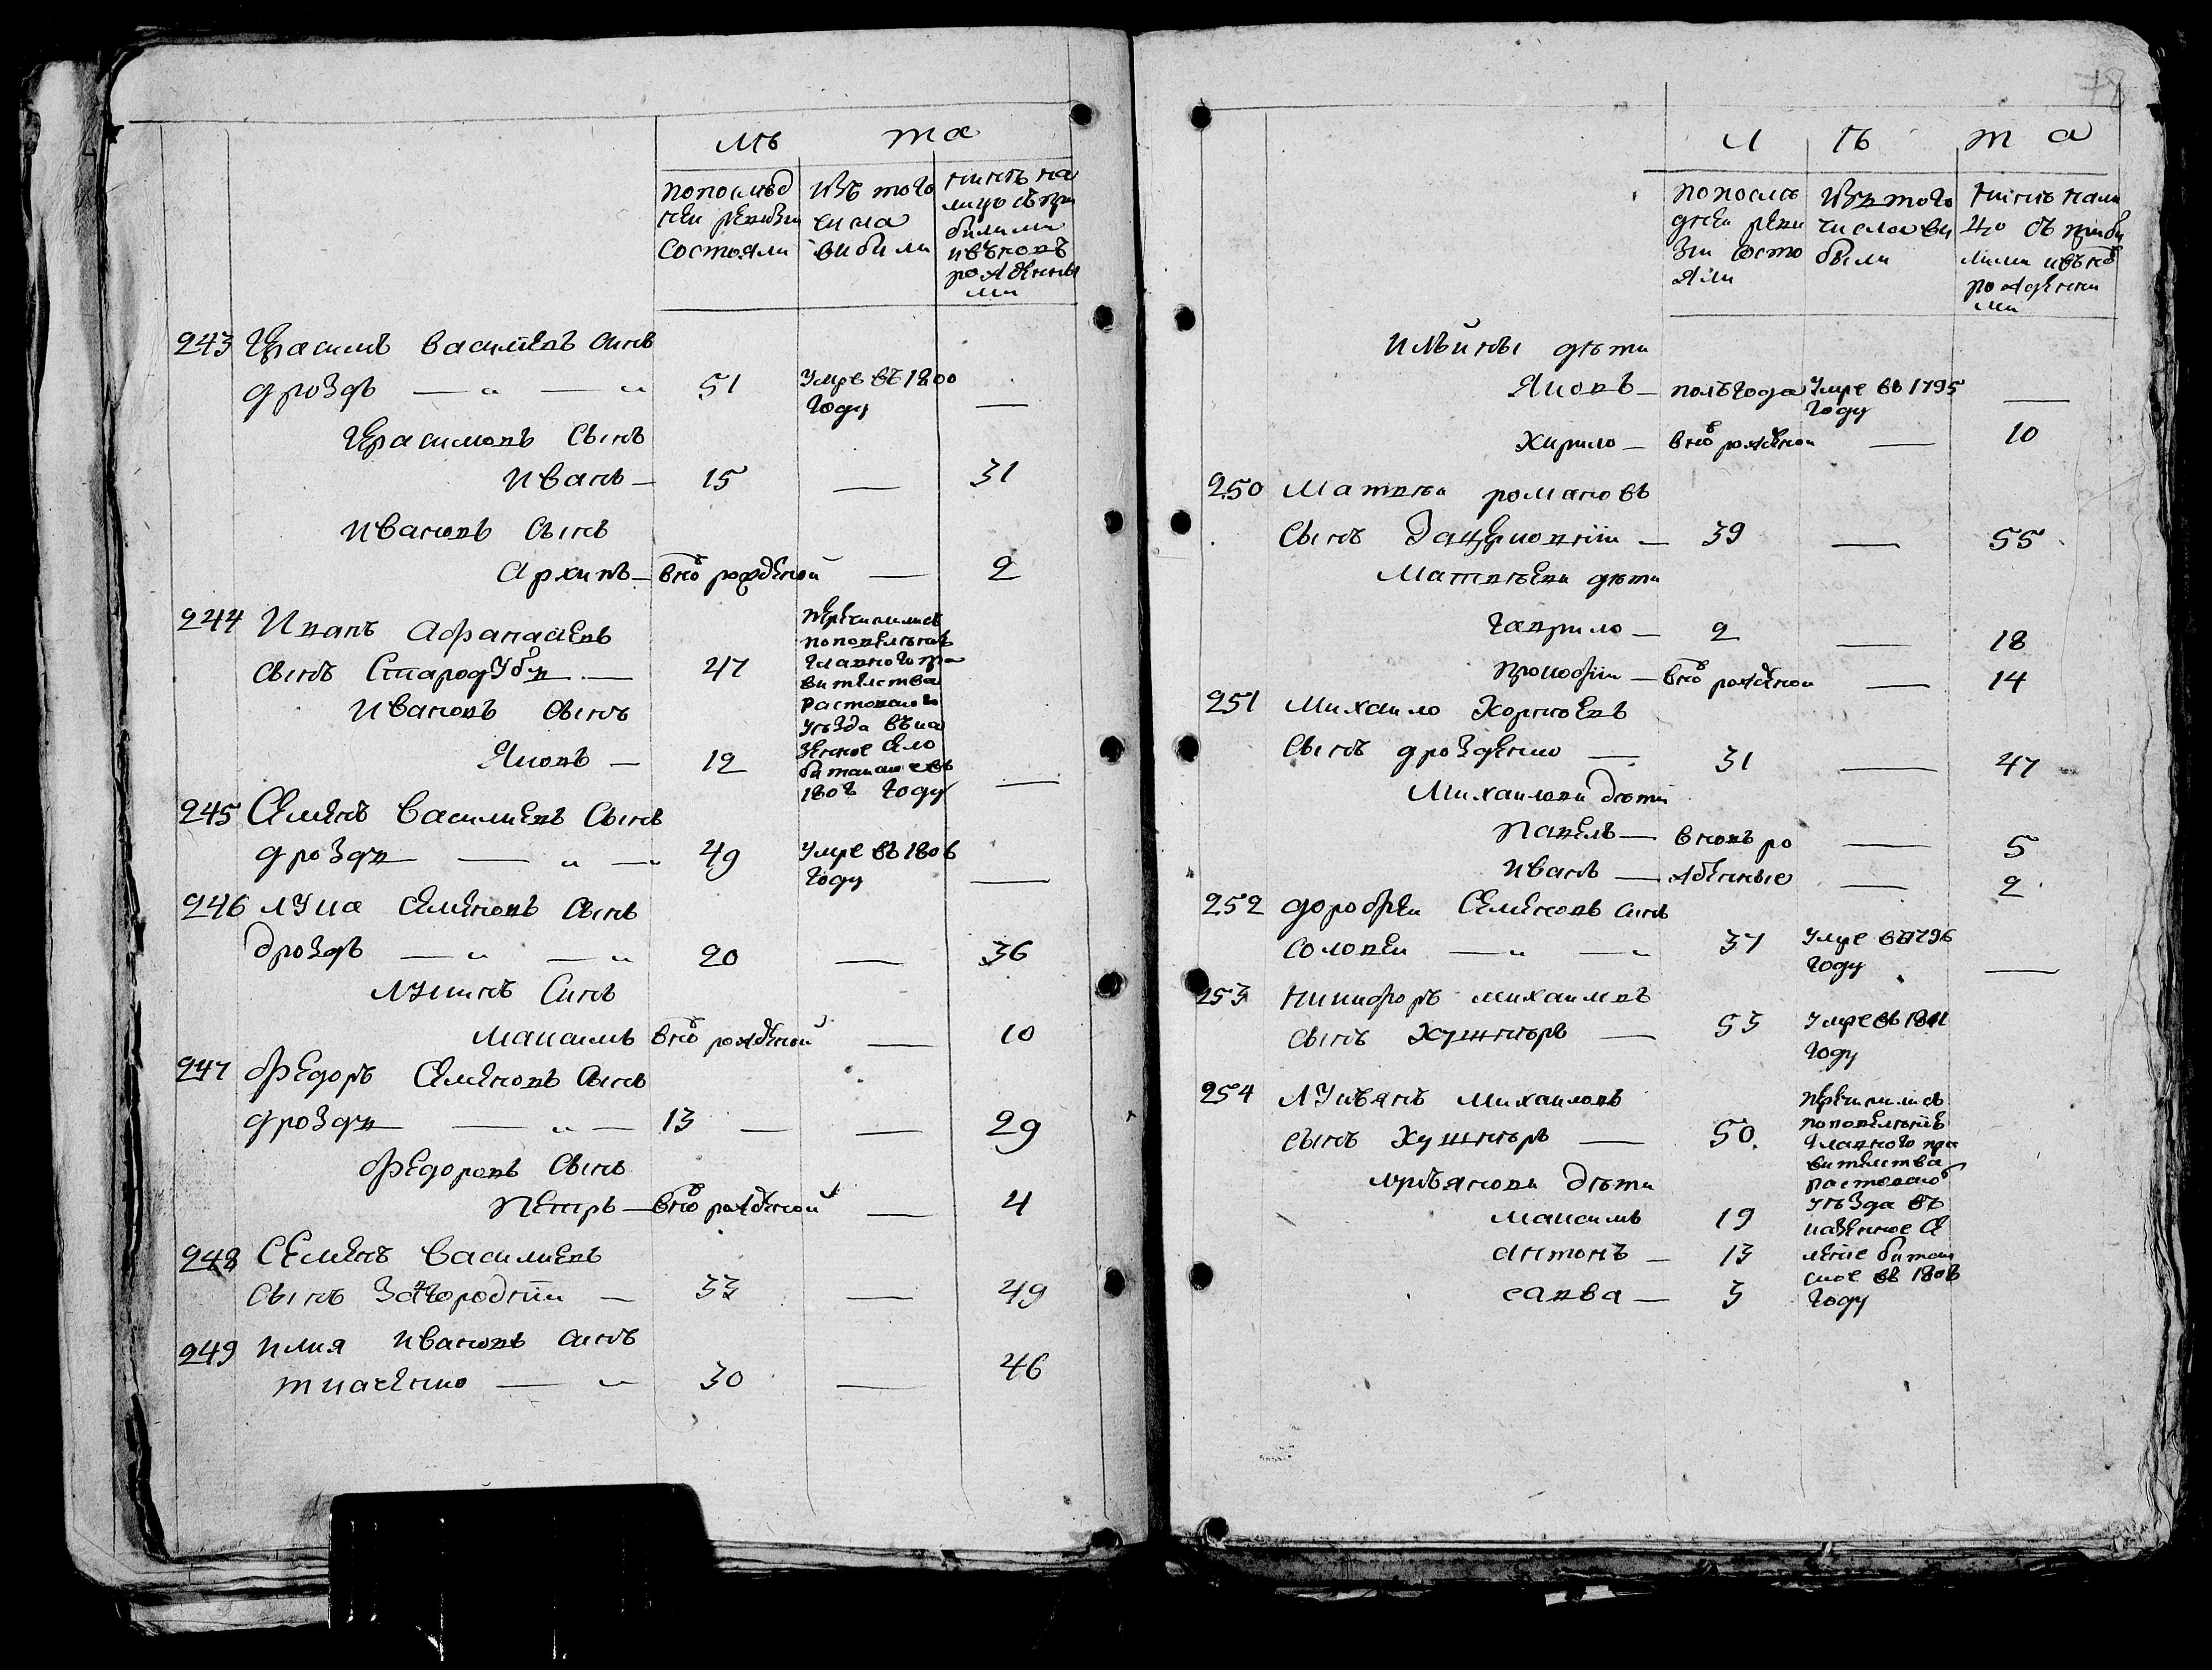 лѣ та
попослѣд
ней ревизи
состояли
изъ того
числа
вибили
нинѣ на
лицо съ при
билими
ивъновъ
рожденны
ми
243 Герасимъ Василіевъ синъ
дроздъ — „ — „ 51 Умре въ 1800 —
году
Герасимовъ Сынъ
Иванъ — 15 — 31
Ивановъ Сынъ
Архипъ — вно рожденой — 2
244 Иванъ Афанасиевъ
сынъ Стародубъ — 47
Ивановъ Сынъ
Яковъ — 12 —
перечислилис
поповеленію
главного пра
вителства
растовского
уезда въка
зенное село
1808 году
245 Семенъ Василиевъ Сынъ
дроздъ — „ — „ 49 Умре въ 1806 —
году
246 лУка Семеновъ Сынъ
дроздъ — „ — „ 20 — 36
лУкинъ Синъ
максимъ вно рожденой — 10
247 Федоръ Семеновъ Сынъ
дроздъ — „ — 13 — — 29
Федоровъ Сынъ
Петръ — вно рожденой — 4
248 Семенъ Василиевъ
Сынъ Загородній — 33 — 49
249 илия Ивановъ синъ
ткаченко — „ 30 — 46
л ѣ т а
попослѣ
дней реви
зіи состо
яли
Изъ того
числа ви
были
нинѣ нали
цо съ приби
лими ивъно
рожденни
ми
илЬйны дѣти
Яковъ — полъгода Умре въ 1795 —
году
Кирило — вно рожденой — 10
250 Матвѣи романовъ
Сынъ Зацерковній — 39 — 55
Матвѣеви дѣти
гаврило — 2 — 18
Прокофіи — вно рожденой — 14
251 Михаило Корнѣевъ
Сынъ дрозденко — 31 — 47
Михаилови дѣти
Павелъ — вновъ ро — 5
Иванъ — жденные — 2
252 дорофеи Семеновъ синъ
соловеи — „ — „ 37 Умре въ 1796 —
году
253 никифоръ михаиловъ
сынъ Кушниръ — 53 Умре въ 1811
году
254 лУкъянъ Михаиловъ
сынъ Кушниръ — 50.
лукъянови дѣти
максимъ 19
антонъ — 13
савва — 3
перечислилис
поповеленіе
главного пра
вителства
растовского
уѣзда въ
казенное се
леніе битаи
ское въ 1808
году